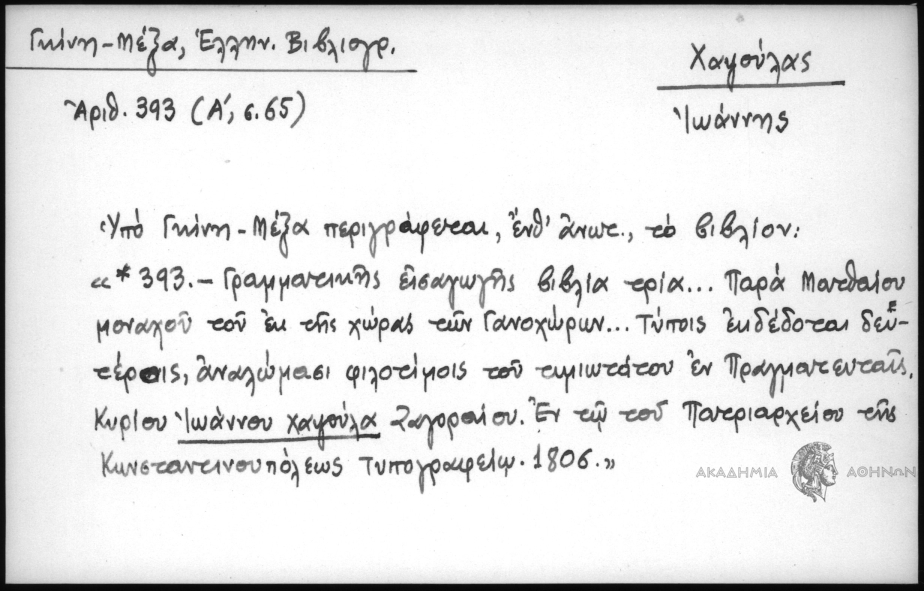 Γκίνη-Μέξα, Ἑλλην. Βιβλιογρ.
Ἀριθ. 393 (Α΄, σ. 65)
Χαψούλας
Ἰωάννης
Ὑπό Γκίνη-Μέξα περιγράφεται, ἔνθ' ἄνωτ., τό βιβλίον:
«*393.- Γραμματικῆς εἰσαγωγῆς βιβλία τρία... Παρά Ματθαίου
μοναχοῦ τοῦ ἐκ τῆς χώρας τῶν Γανοχώρων... Τύποις ἐκδέδοται δευ-
τέροις, ἀναλώμασι φιλοτίμοις τοῦ τιμιωτάτου ἐν Πραγματευταῖς,
Κυρίου Ἰωάννου Χαψούλα Ζαγοραίου. Ἐν τῷ τοῦ Πατριαρχείου τῆς
Κωνσταντινουπόλεως Τυπογραφείῳ. 1806.»
ΑΚΑΔΗΜΙΑ ΑΘΗΝΩΝ